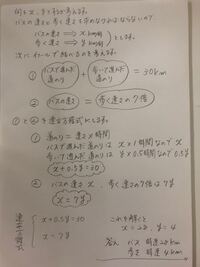 何を x, y とするか考える。
バスの速さと歩く速さを求めなければならないので
バスの速さ ⇒ x km/時
歩く速さ ⇒ y km/時 とします。
次にイコールで結べるものを考える。
① バスで進んだ道のり + 歩いて進んだ道のり = 30km
② バスの速さ = 歩く速さの7倍
①と②を連立方程式にします。
① 道のり = 速さ×時間
バスで進んだ道のりは x×1時間なので x
歩いて進んだ道のりは y×0.5時間なので 0.5y
x+0.5y=30
② バスの速さ x 歩く速さの7倍は 7y
x=7y
連立方程式
x+0.5y=30
x=7y
これを解くと
x=28, y=4
答え バス 時速28km
歩き 時速4km